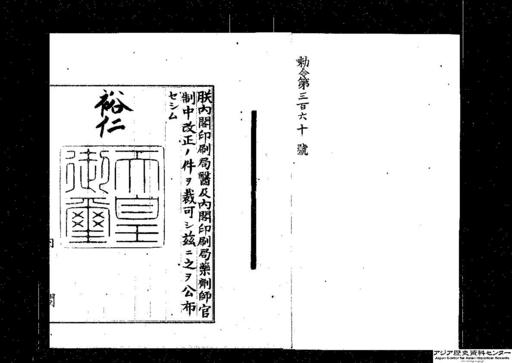 勅令第三百六十號
朕內閣印刷局醫及內閣印刷局藥劑師官
制中改正ノ件ヲ裁可シ茲ニ之ヲ公布
セシム
裕仁
天皇
御璽
アジア歴史資料センター
Japan Center for Asian Historical Records